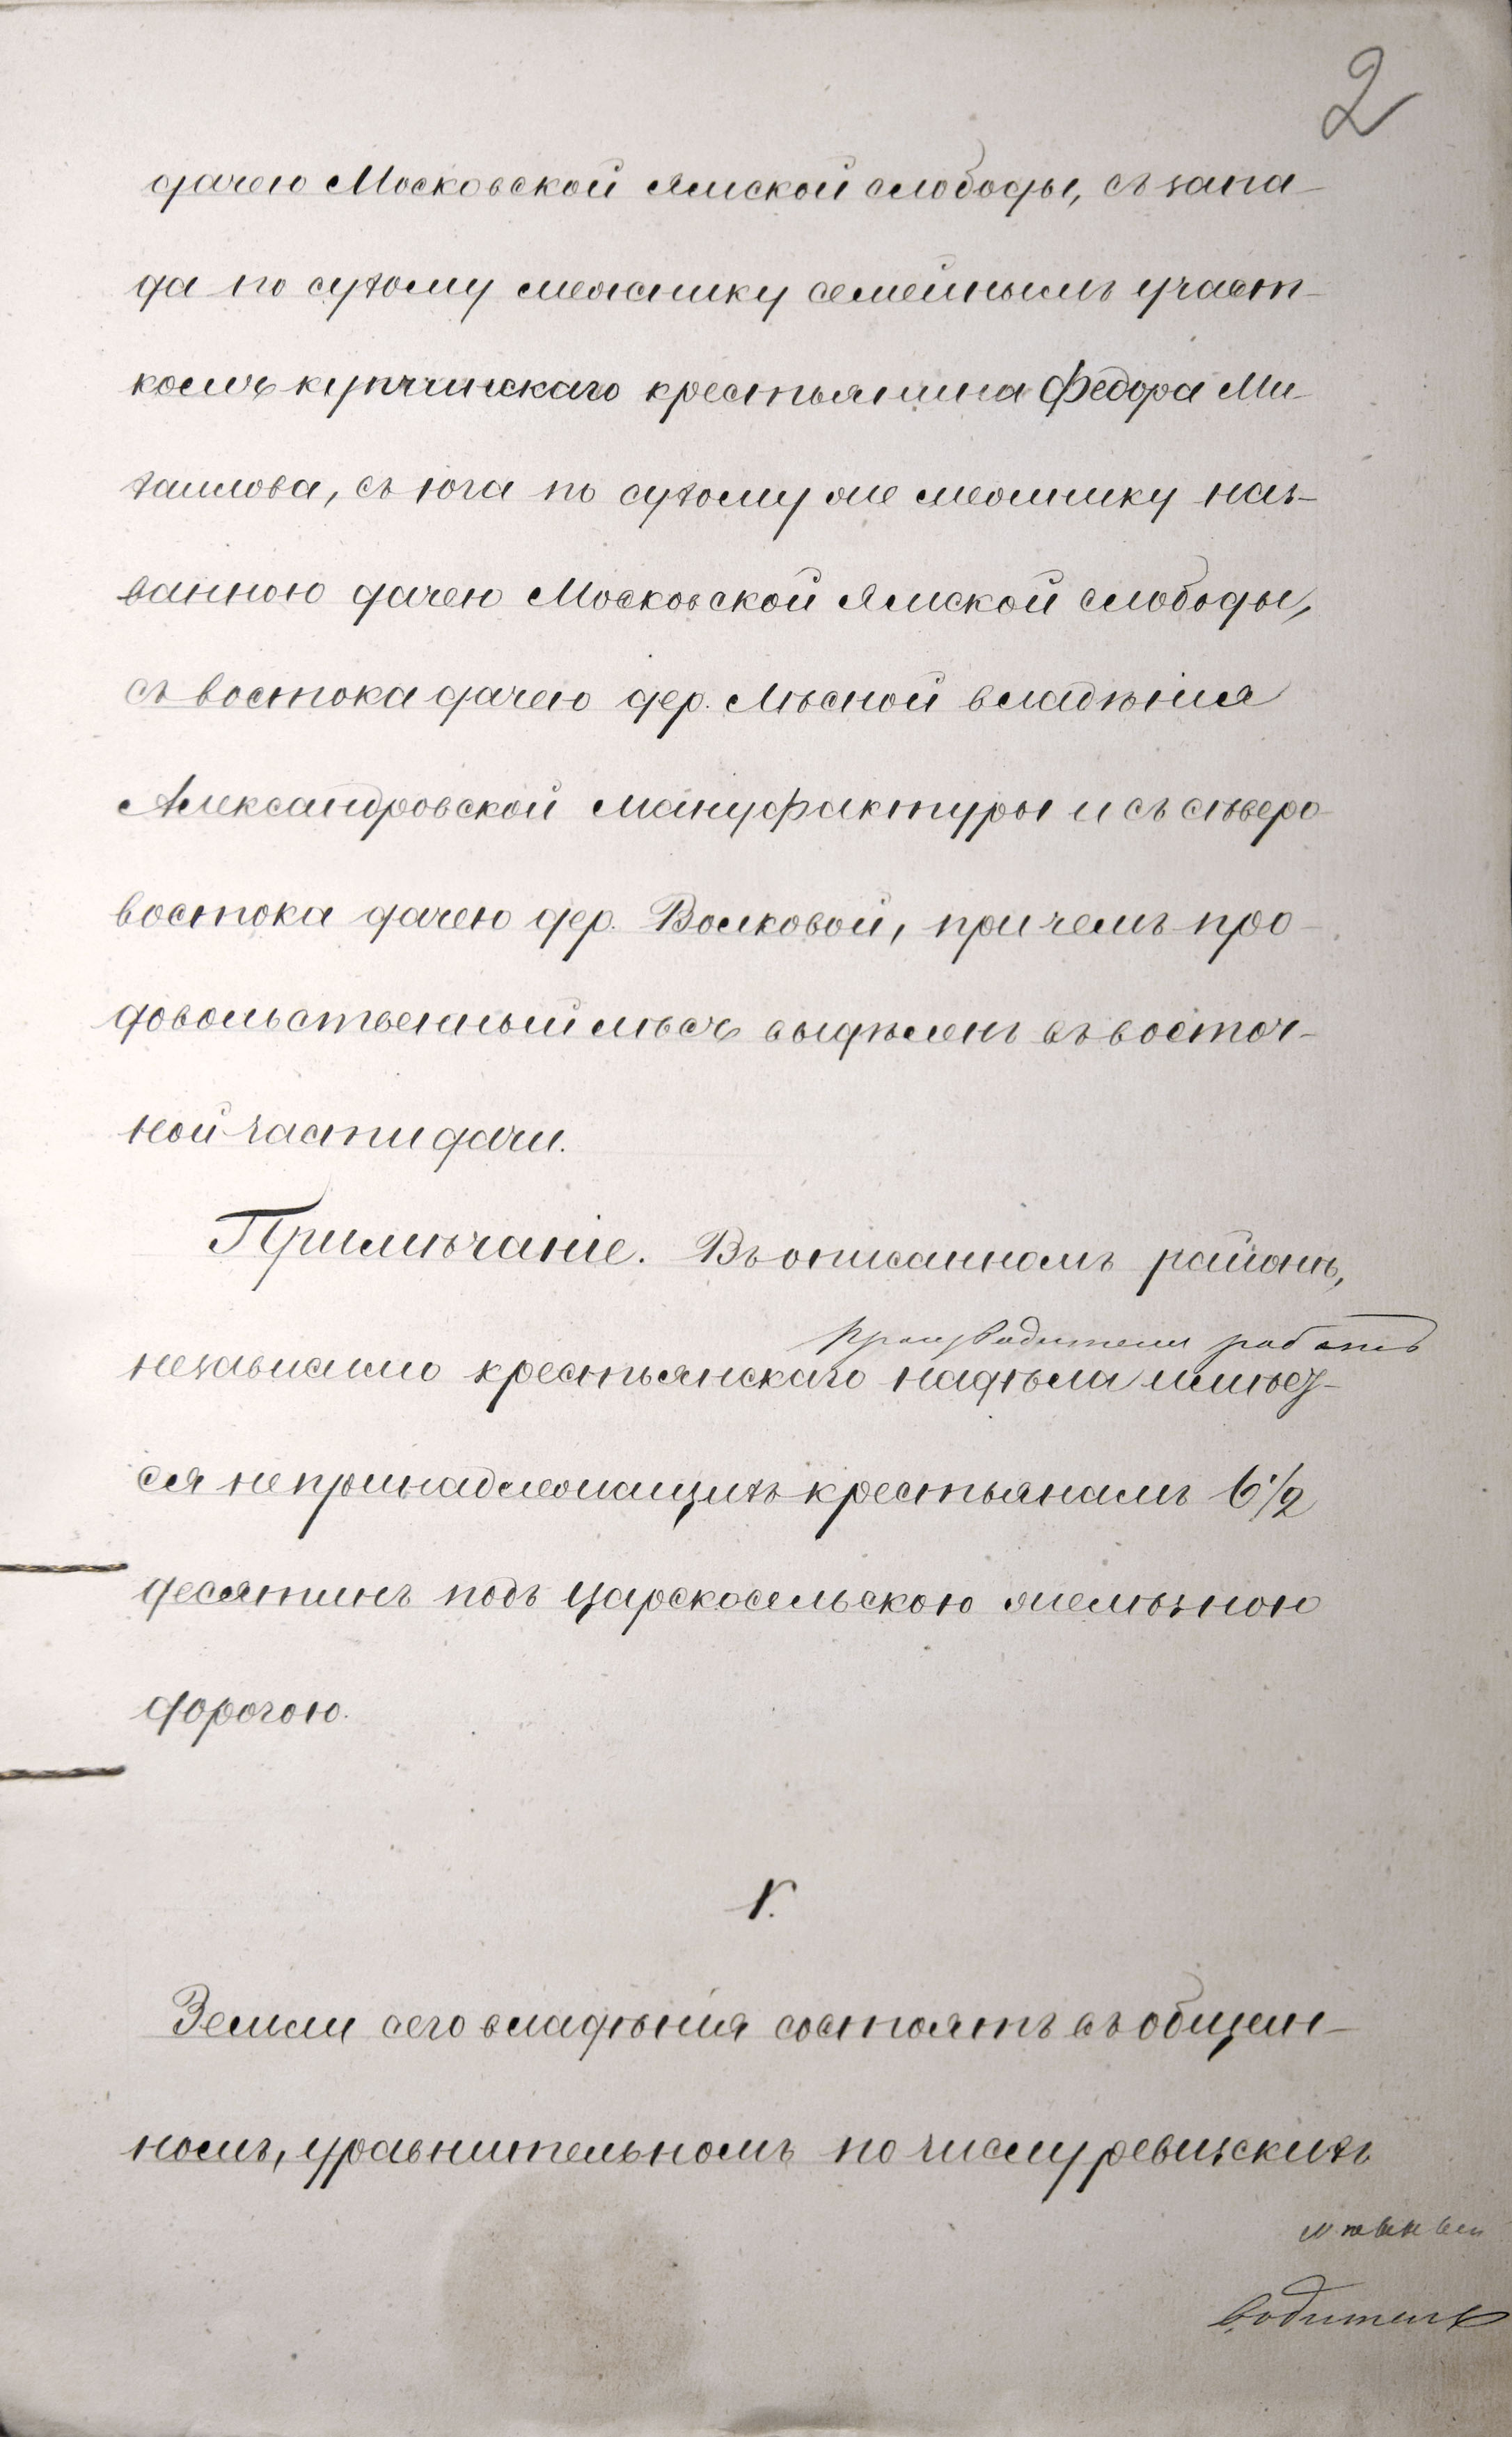 2
дачею Московской Ямской слободы, съ запа-
да по сухому межнику семейнымъ участ-
комъ купчинскаго крестьянина Федора Ми-
хайлова, съ юга по сухому же межнику наз-
ванною дачею Московской Ямской слободы,
съ востока дачею дер. Лѣсной владѣнія
Александровской мануфактуры и съ сѣверо-
востока дачею дер. Волковой, причемъ про-
довольственный лѣсъ выдѣленъ въ восточ-
ной части дачи.
Примѣчаніе. Въ описанномъ районѣ,
Производителя работъ
независимо крестьянскаго надѣла имѣет-
ся не принадлежащихъ крестьянамъ 6 1/2
десятинъ подъ Царскосельскою желѣзною
дорогою.
V.
Земли сего владѣнія состоятъ въ общин-
номъ, уравнительномъ по числу ревизскихъ
водитель